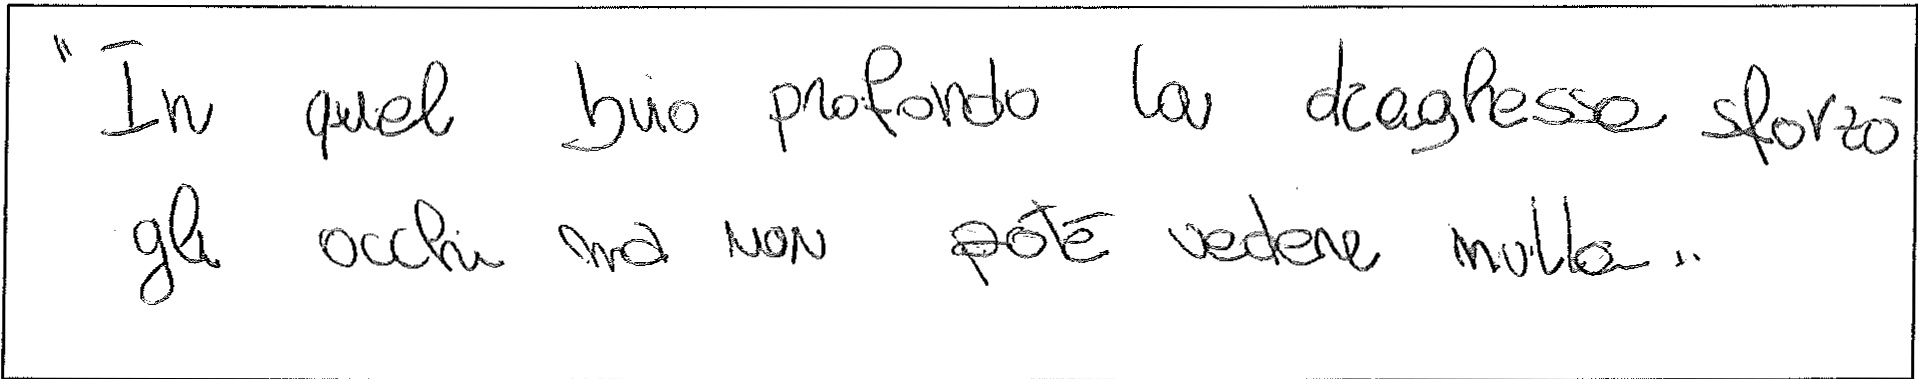 "In quel buio profondo la draghessa sforzò
gli occhi ma non potè vedere nulla..